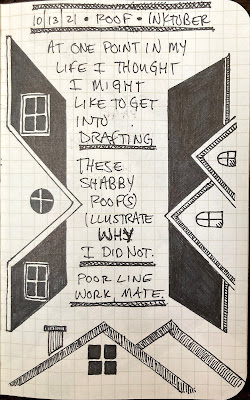 10/13/21 • ROOF • INKTOBER
AT ONE POINT IN MY
LIFE I THOUGHT
I MIGHT
LIKE TO GET
INTO
DRAFTING
THESE
SHABBY
ROOF(S)
ILLUSTRATE
WHY
I DID NOT.
POOR LINE
WORK, MATE.